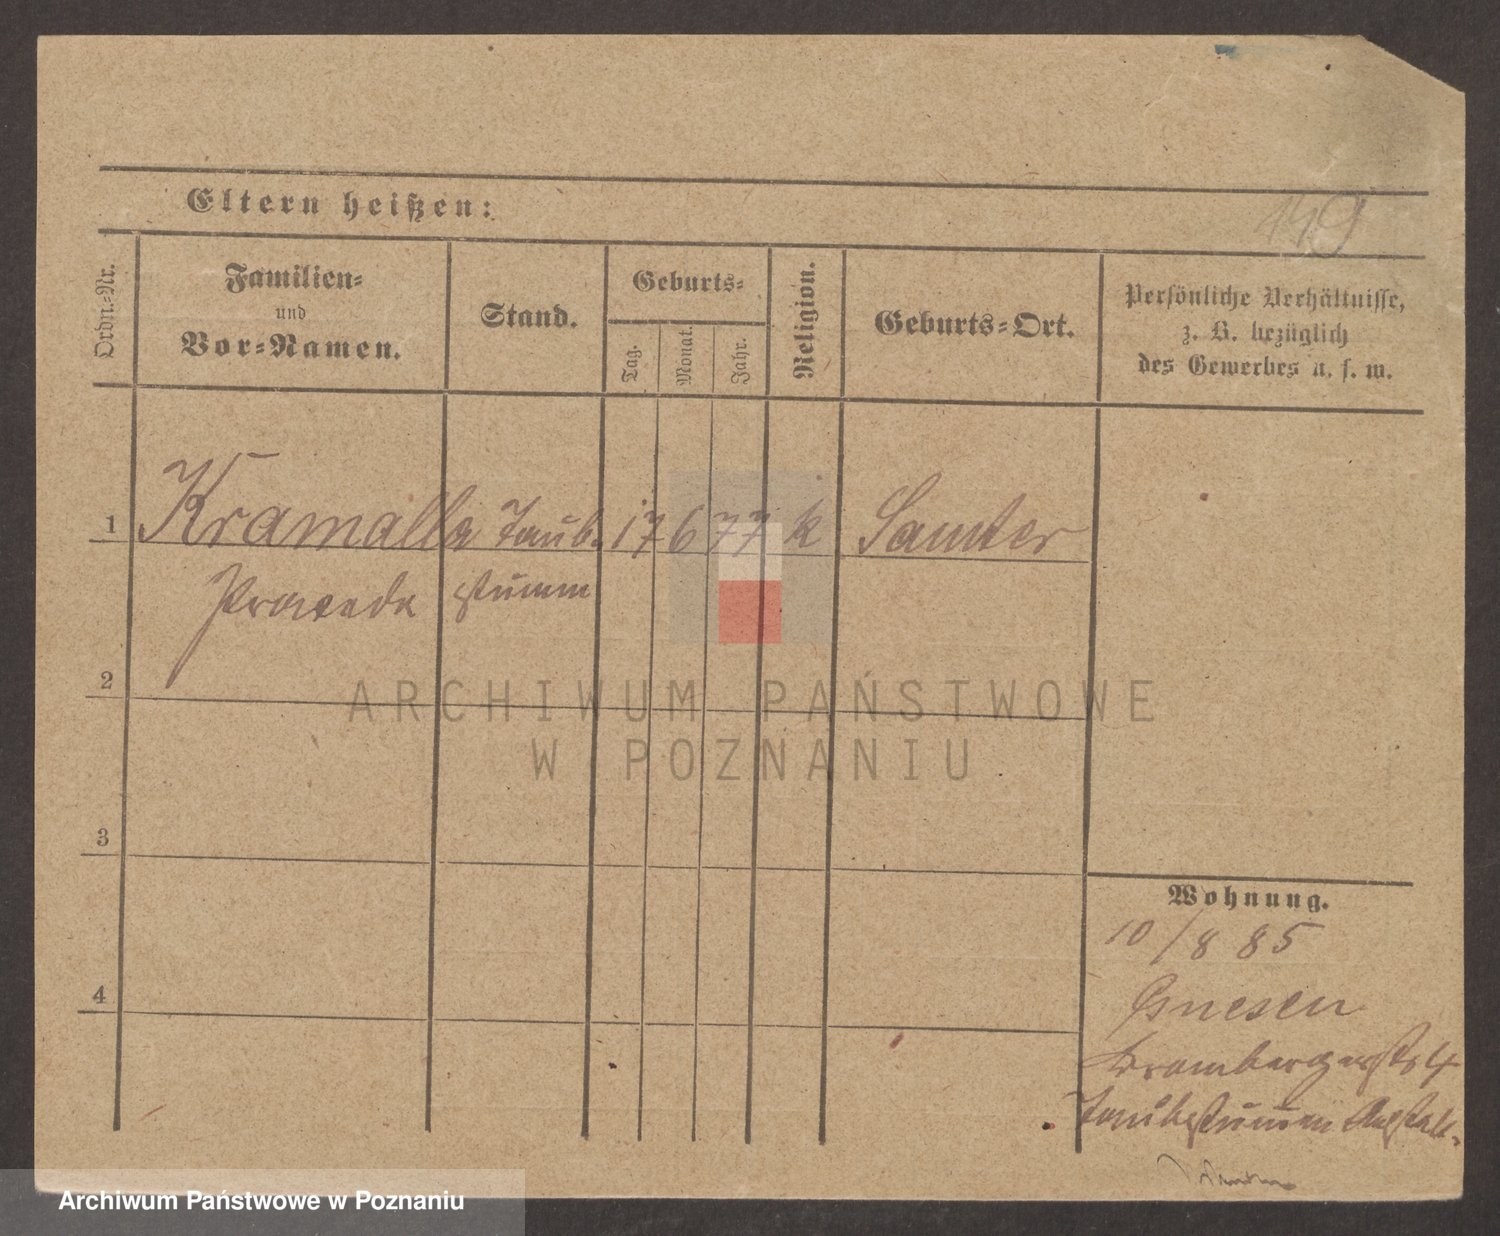 149
Eltern heißen:
Ordn.-Nr.
Familien-
und
Vor-Namen.
Stand.
Geburts-
Tag.
Monat.
Jahr.
Religion.
Geburts-Ort.
Persönliche Verhältnisse,
z. B. bezüglich
des Gewerbes u. s. w.
1 Kramalla Taub- 17 6 77 k Samter
Praxeda stumm
2
ARCHIWUM PAŃSTWOWE
W POZNANIU
3
Wohnung.
10/8 85
4
Gnesen
Brombergerstr 4
Taubstummen Anstalt.
Archiwum Państwowe w Poznaniu